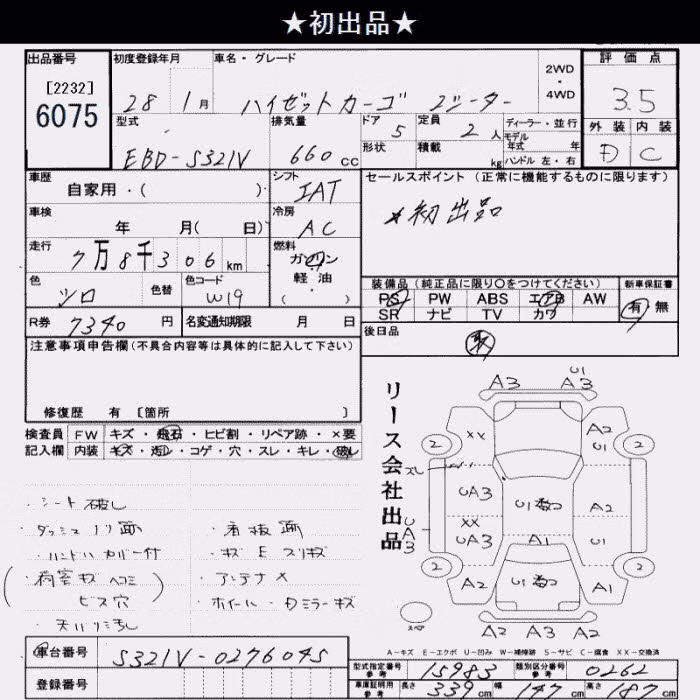 ★初出品★
出品番号 初度登録年月 車名・グレード 2WD・4WD 評価点
[2232]
6075
28 1月 ハイゼットカーゴ 2シーター 3.5
型式 排気量 ドア 定員 ディーラー・並行 外装 内装
EBD-S321V 660cc 5 2人 モデル年式 年 D C
形状 積載 kg ハンドル 左・右
車歴 シフト セールスポイント(正常に機能するものに限ります)
自家用・( ) IAT
★初出品
車検 冷房
年 月( 日) AC
走行 燃料
7万8千306km ガソリン
軽・油
( )
色 色替 色コード 装備品(純正品に限り○をつけてください) 新車保証書
シロ W19 PS PW ABS エアB AW 有 無
SR ナビ TV カワ
R券 7340円 名変通知期限 月 日 後日品
注意事項申告欄(不具合内容等は具体的に記入して下さい)
修復歴 有 [箇所 ]
検査員 FW キズ・飛石・ヒビ割・リペア跡・×要
記入欄 内装 キズ・汚レ・コゲ・穴・スレ・キレ・破レ
リース会社出品
・シート破レ
・ダッシュノリ面 ・看板跡
・ハンドルカバー付 ・キズEスリキズ
・荷室キズヘコミ ・アンテナ×
ビス穴 ・ホイール・Dミラーキズ
・天ハリ汚レ
U1
A3 A3
A2
XX U1
2 2
スレ
UA3 A2
XX
UA3 A1 U1
UA3
2 2
A2 A1
スペア
A2 A3 A2
A-キズ E-エクボ U-凹み W-補修跡 S-サビ C-腐食 XX-交換済
車台番号 S321V-0276045
登録番号
型式指定番号 参考 15983 類別区分番号 参考 0262
車庫証明用 参考 長さ 339cm 幅 147cm 高さ 187cm